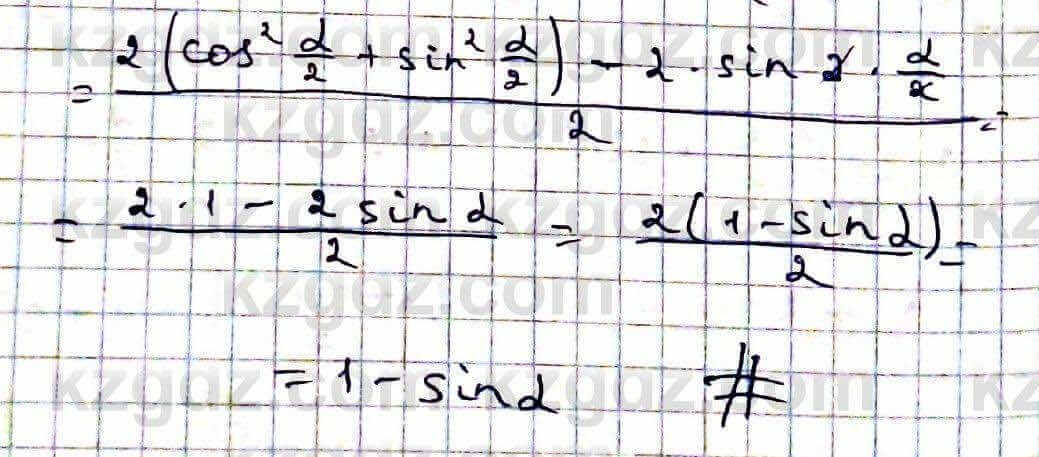 = (2(cos² α/2 + sin² α/2) - 2 · sin 2 · α/2) / 2 =
= (2 · 1 - 2 sin α) / 2 = 2(1 - sin α) / 2 =
= 1 - sin α #
kzgdz.com